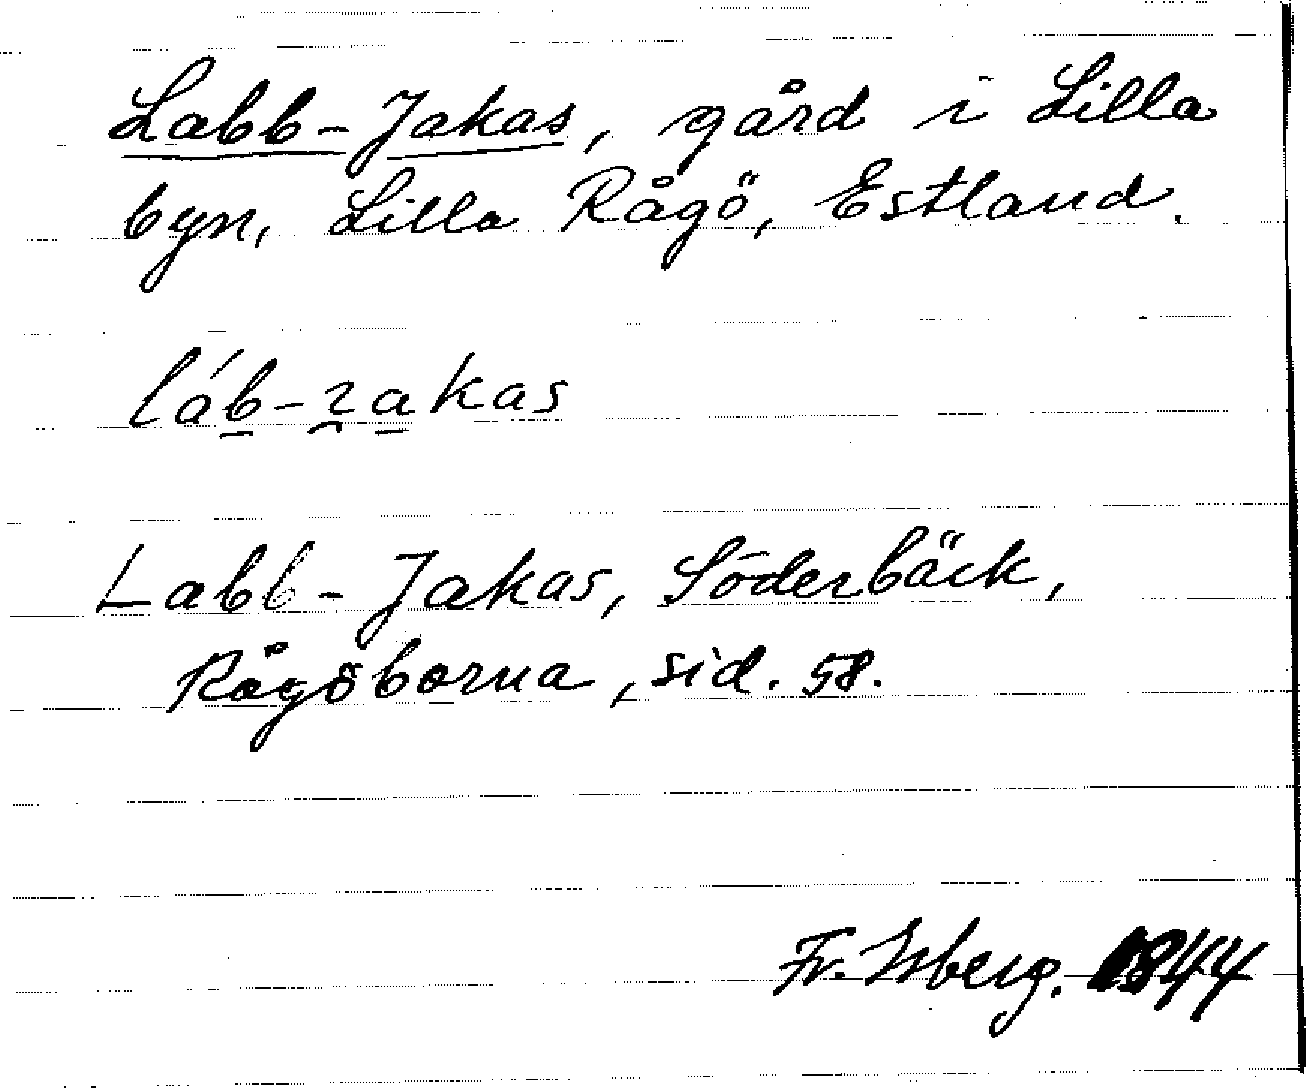 Labb-Jakas, gård i Lilla
byn, Lilla Rågö, Estland.
láb-zakas
Labb-Jakas, Söderbäck,
Rågöborna, sid. 58.
Fr. Isberg.